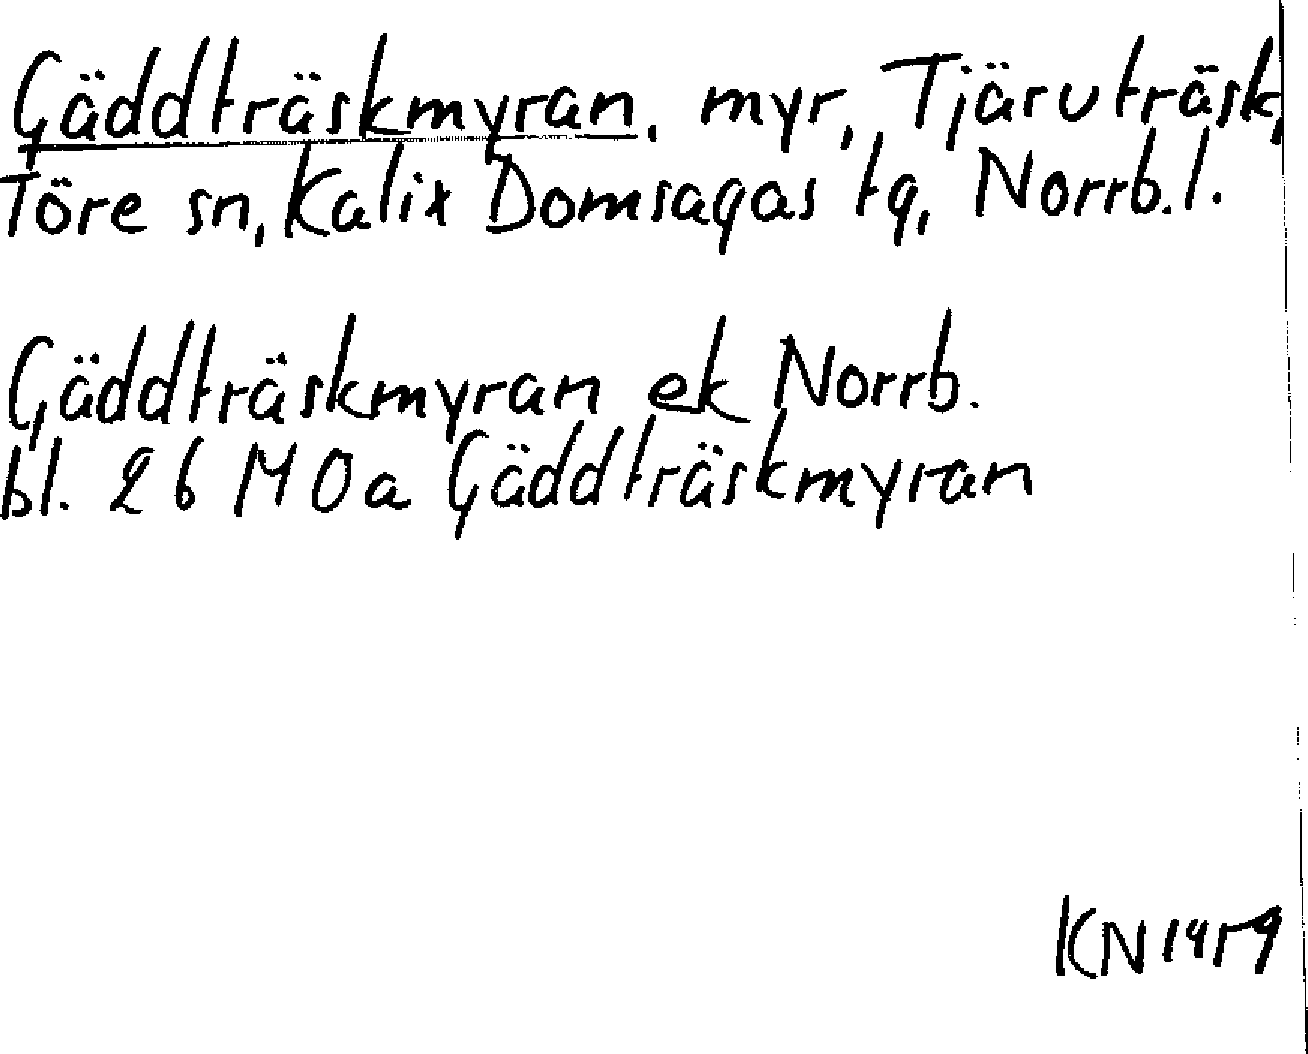 Gäddträskmyran, myr, Tjäruträsk,
Töre sn, Kalix Domsagas tg, Norrb.l.
Gäddträskmyran ek Norrb.
bl. 26 M 0a Gäddträskmyran
KN 1959